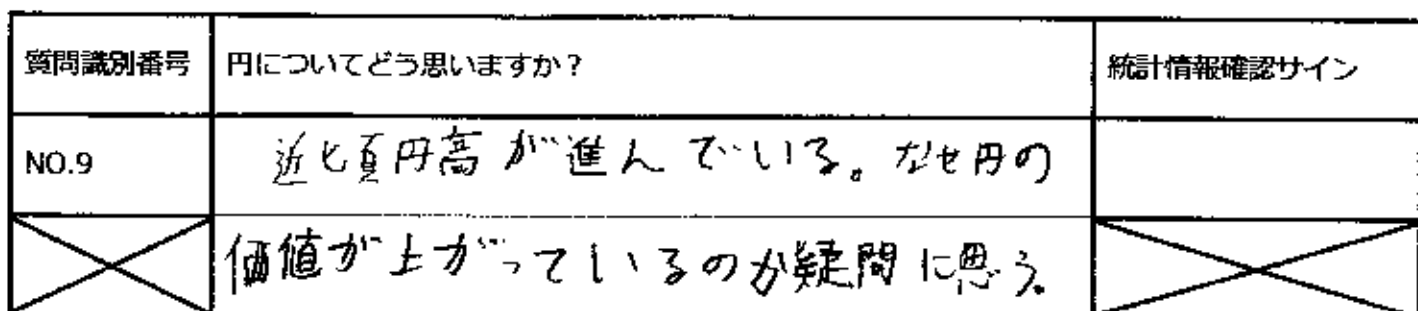 質問識別番号 円についてどう思いますか？ 統計情報確認サイン
NO.9 近頃円高が進んでいる。なぜ円の
価値が上がっているのか疑問に思う。